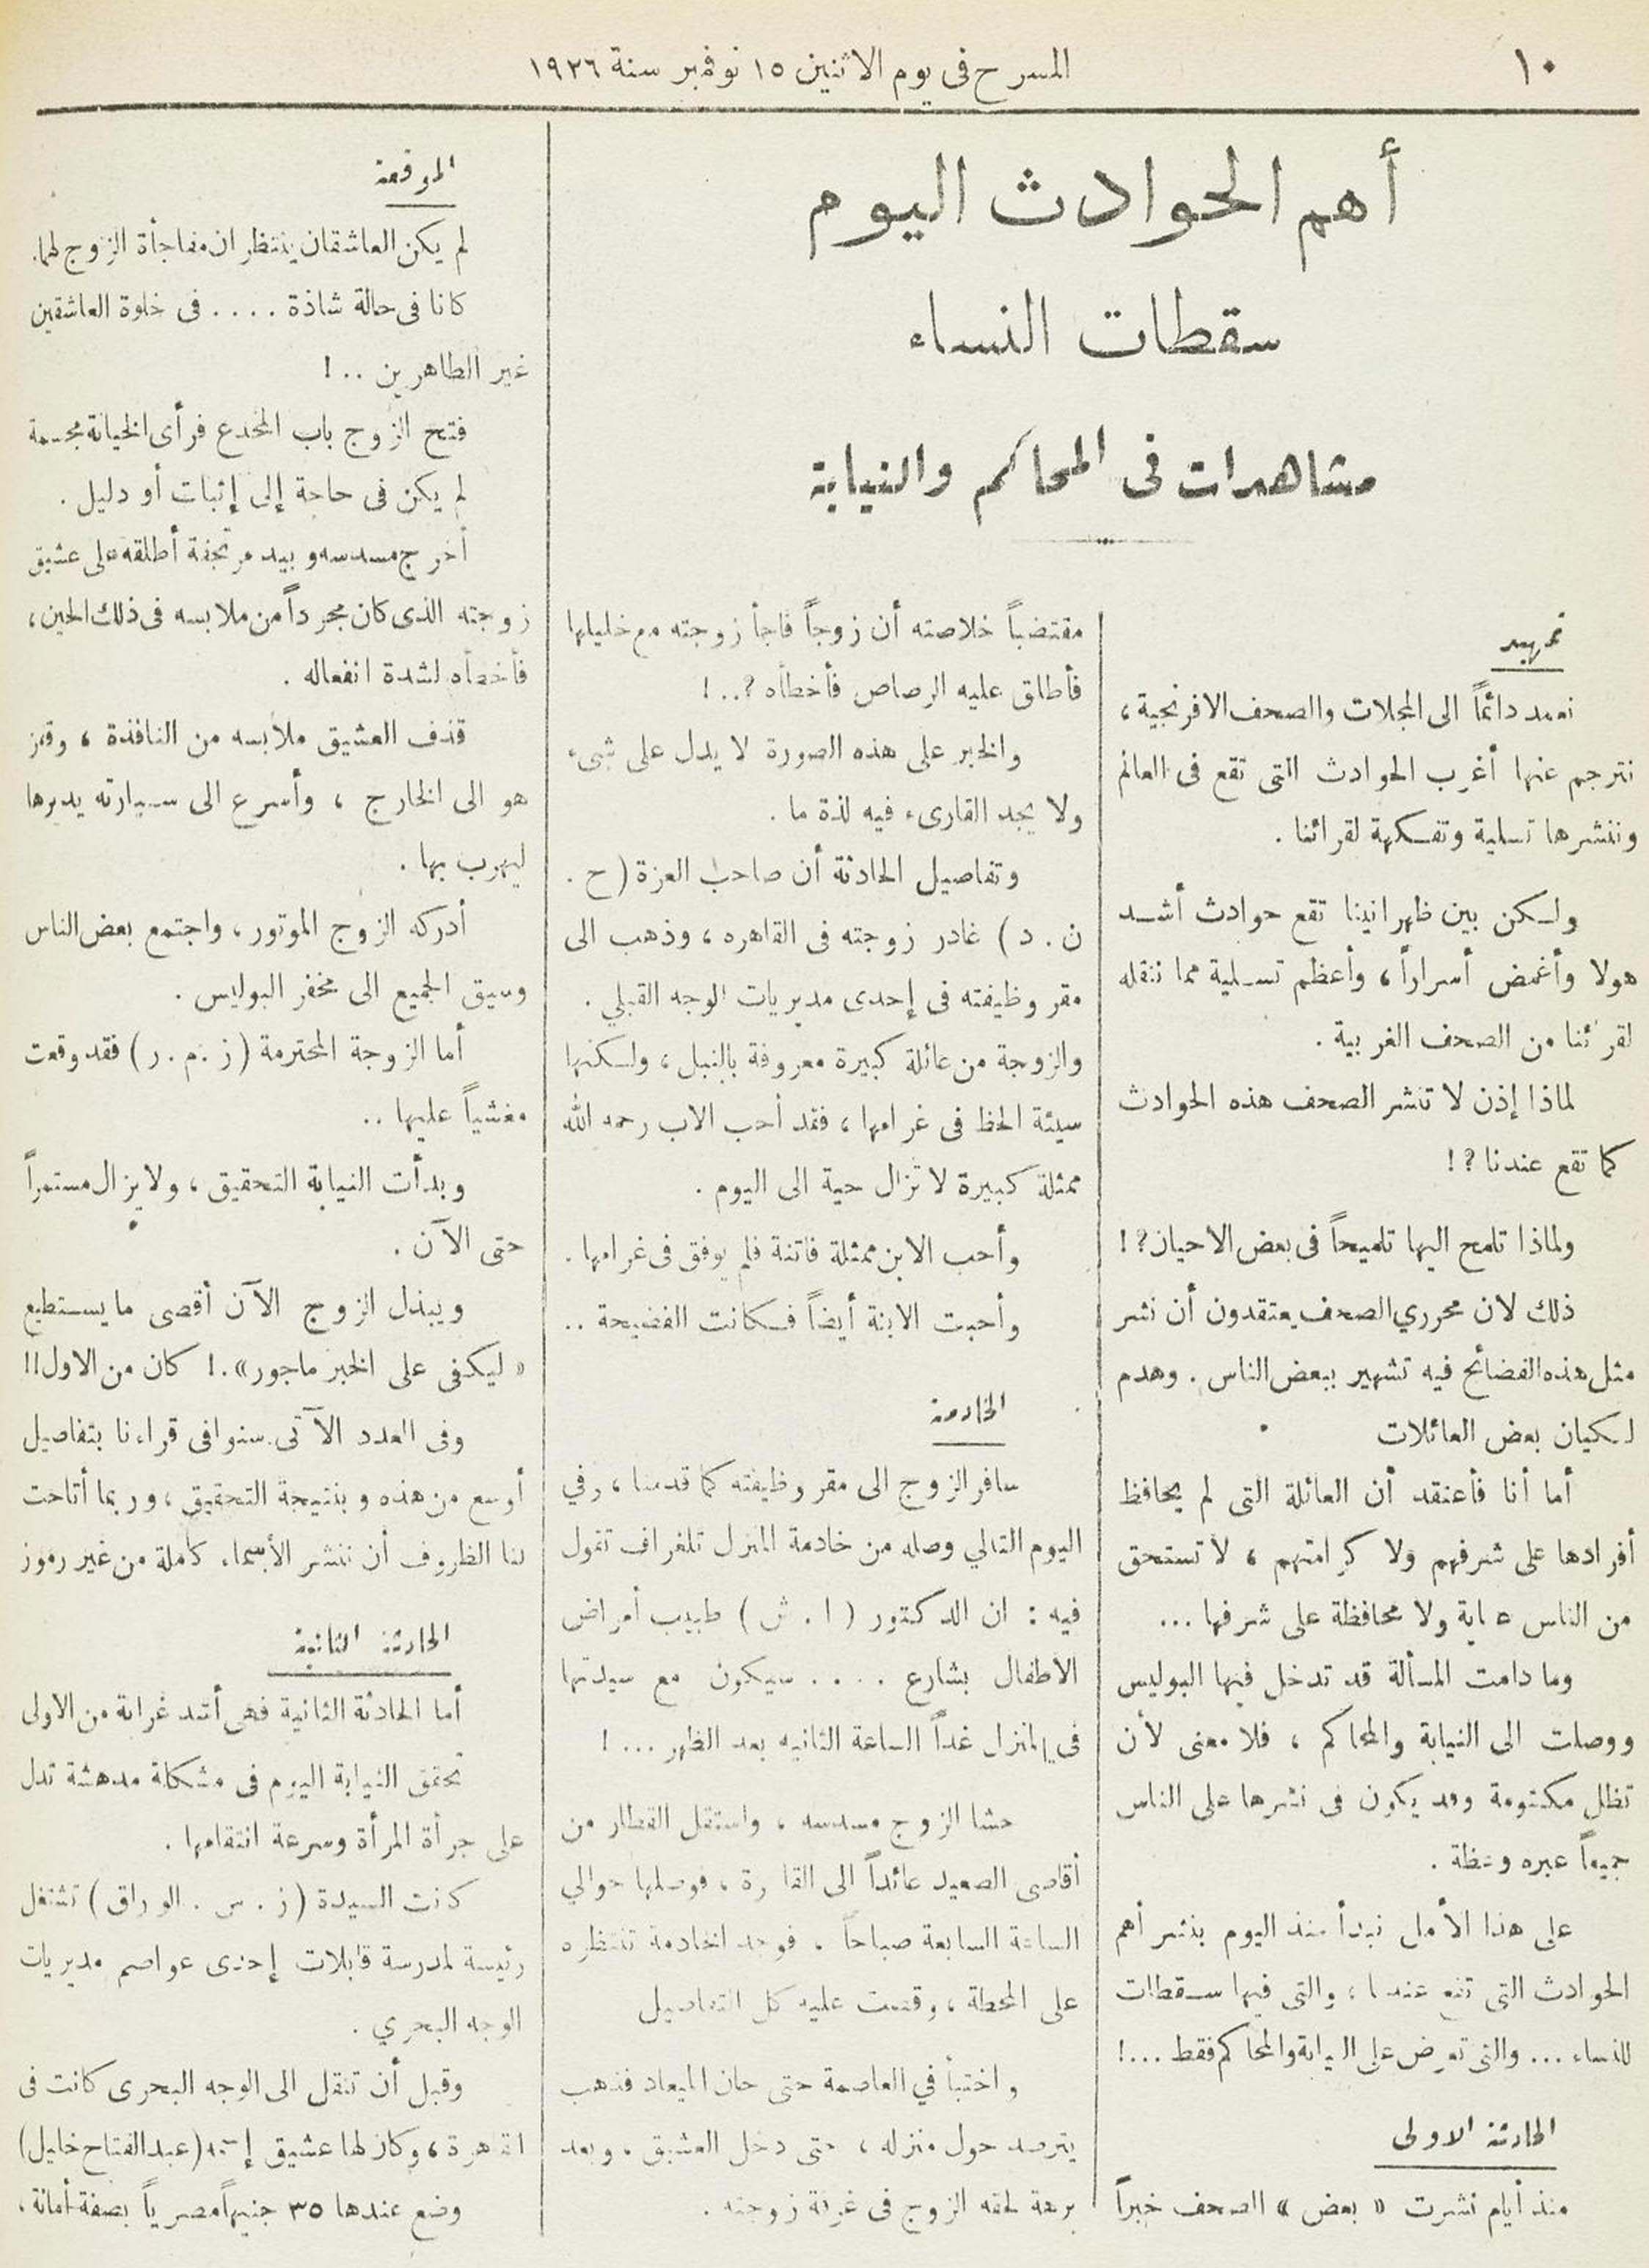 ١٠
المسرح فى يوم الاثنين ١٥ نوفمبر سنة ١٩٢٦
أهم الحوادث اليوم
سقطات النساء
مشاهدات فى المحاكم والنيابة
تمهيد
نعمد دائماً الى المجلات والصحف الافرنجية،
نترجم عنها أغرب الحوادث التى تقع فى العالم
وننشرها تسلية وتفكهة لقرائنا .
ولكن بين ظهرانينا تقع حوادث أشد
هولا وأغمض أسراراً، وأعظم تسلية مما ننقله
لقرئنا من الصحف الغربية .
لماذا إذن لا تنشر الصحف هذه الحوادث
كما تقع عندنا ؟ !
ولماذا تلمح اليها تلميحاً فى بعض الاحيان؟ !
ذلك لان محرري الصحف يعتقدون أن نشر
مثل هذه الفضائح فيه تشهير ببعض الناس . وهدم
لكيان بعض العائلات
أما أنا فأعتقد أن العائلة التى لم يحافظ
أفرادها على شرفهم ولا كرامتهم ، لا تستحق
من الناس عاية ولا محافظة على شرفها ...
وما دامت المسألة قد تدخل فيها البوليس
ووصلت الى النيابة والمحاكم ، فلا معنى لأن
تظل مكتومة وقد يكون فى نشرها على الناس
جميعاً عبره وعظة .
على هذا الأمل نبدأ منذ اليوم بنشر أهم
الحوادث التى تقع عندنا ؛ والتى فيها سقطات
للنساء ... والتى تعرض على النيابة والمحاكم فقط ...!
الحادثة الاولى
منذ أيام نشرت « بعض » الصحف خبراً
مقتضباً خلاصته أن زوجاً فاجأ زوجته مع خليلها
فأطلق عليه الرصاص فأخطأه ؟..!
والخبر على هذه الصورة لا يدل على شىء
ولا يجد القارىء فيه لذة ما .
وتفاصيل الحادثة أن صاحب العزة (ح .
ن . د ) غادر زوجته فى القاهره ، وذهب الى
مقر وظيفته فى إحدى مديريات الوجه القبلي .
والزوجة من عائلة كبيرة معروفة بالنبل، ولكنها
سيئة الحظ فى غرامها ، فقد أحب الاب رحمه الله
ممثلة كبيرة لا تزال حية الى اليوم .
وأحب الابن ممثلة فاتنة فلم يوفق فى غرامها .
وأحبت الابنة أيضاً فكانت الفضيحة ..
الخادمة
سافر الزوج الى مقر وظيفته كما قدمنا ، وفي
اليوم التالي وصله من خادمة المنزل تلغراف تقول
فيه : ان الدكتور ( ا . ش ) طبيب أمراض
الاطفال بشارع .... سيكون مع سيدتها
فى المنزل غداً الساعة الثانيه بعد الظهر ... !
حشا الزوج مسدسه ، واستقل القطار من
أقاصى الصعيد عائداً الى القا رة ، فوصلها حوالي
الساعة السابعة صباحاً . فوجد الخادمة تنتظره
على المحطة ، وقصت عليه كل التفاصيل
واختبأ في العاصمة حتى حان الميعاد فذهب
يترصد حول منزله ، حتى دخل العشيق . وبعد
برهة لحقه الزوج فى غرفة زوجته .
الموقعة
لم يكن العاشقان ينتظران مفاجأة الزوج لهما.
كانا فى حالة شاذة .... فى خلوة العاشقين
غير الطاهرين .. !
فتح الزوج باب المخدع فرأى الخيانة مجسمة
لم يكن فى حاجة إلى إثبات أو دليل .
أخرج مسدسه وبيد مرتجفة أطلقه على عشيق
زوجته الذى كان مجرداً من ملابسه فى ذلك الحين،
فأخطأه لشدة انفعاله .
قذف العشيق ملابسه من النافذة ، وقفز
هو الى الخارج ، وأسرع الى سيارته يديرها
ليهرب بها .
أدركه الزوج الموتور، واجتمع بعض الناس
وسيق الجميع الى مخفر البوليس .
أما الزوجة المحترمة ( ز . م . ر ) فقد وقعت
مغشياً عليها ..
وبدأت النيابة التحقيق ، ولا يزال مستمراً
حتى الآن .
ويبذل الزوج الآن أقصى ما يستطيع
« ليكفى على الخبر ماجور» .! كان من الاول!!
وفى العدد الآتى سنوافى قراءنا بتفاصيل
أوسع من هذه وبنتيجة التحقيق ، وربما أتاحت
لنا الظروف أن ننشر الأسماء كاملة من غير رموز
الحادثة الثانية
أما الحادثة الثانية فهى أشد غرابة من الاولى
تحقق النيابة اليوم فى مشكلة مدهشة تدل
على جرأة المرأة وسرعة انتقامها .
كانت السيدة ( ز . س . الوراق ) تشتغل
رئيسة لمدرسة قابلات إحدى عواصم مديريات
الوجه البحري .
وقبل أن تنتقل الى الوجه البحرى كانت فى
القاهرة ، وكان لها عشيق إسمه (عبد الفتاح خليل)
وضع عندها ٣٥ جنيهاً مصرياً بصفة أمانة .